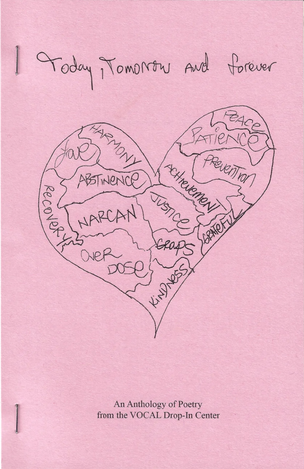 Today, Tomorrow and forever
HARMONY
Love
ABSTINENCE
RECOVERY
NARCAN
OVER
DOSE
PEACE
PATIENCE
PREVENTION
ACHIEVEMENT
JUSTICE
GRATEFUL
GOALS
KINDNESS
An Anthology of Poetry
from the VOCAL Drop-In Center